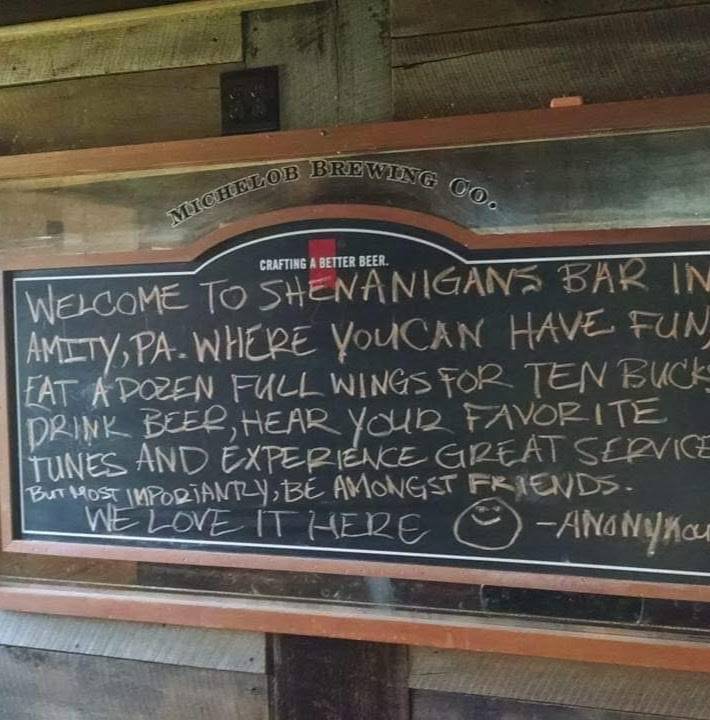 MICHELOB BREWING CO.
CRAFTING A BETTER BEER.
WELCOME TO SHENANIGANS BAR IN
AMITY, PA. WHERE YOU CAN HAVE FUN,
EAT A DOZEN FULL WINGS FOR TEN BUCKS
DRINK BEER, HEAR YOUR FAVORITE
TUNES AND EXPERIENCE GREAT SERVICE
BUT MOST IMPORTANTLY, BE AMONGST FRIENDS.
WE LOVE IT HERE -ANONYMOU